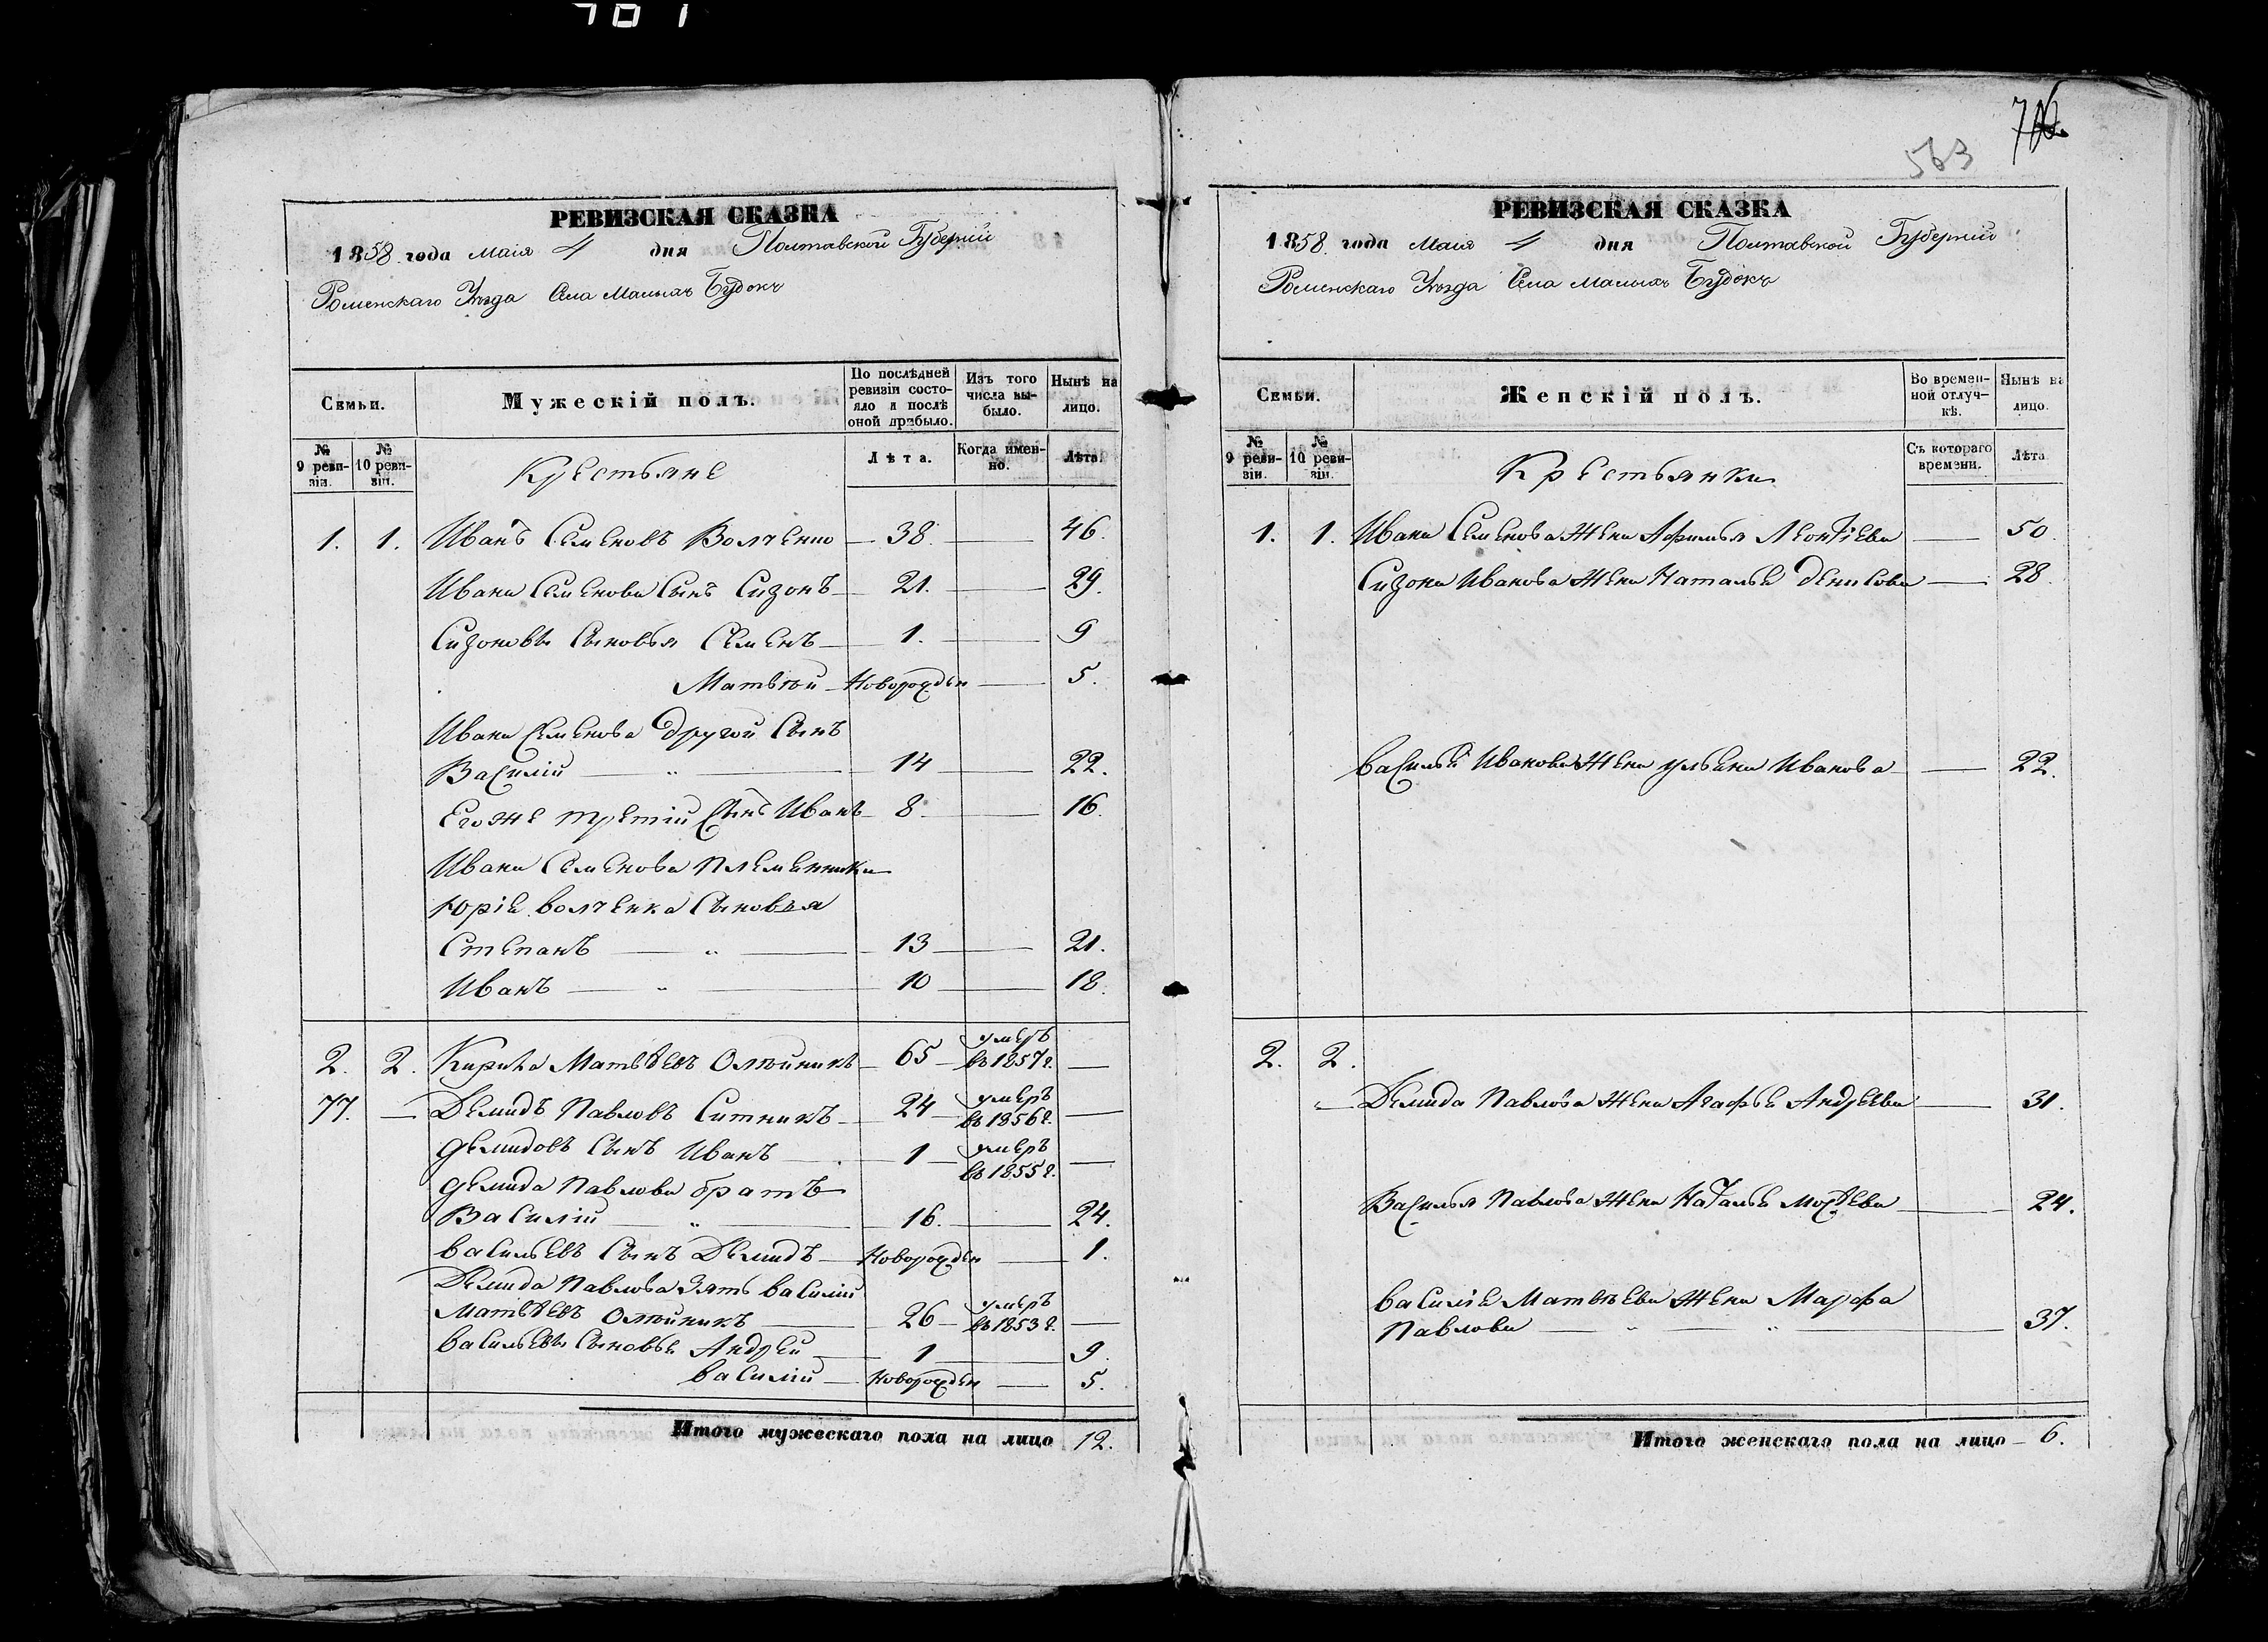 701
РЕВИЗСКАЯ СКАЗКА
1858 года маія 4 дня Полтавской Губерніи
Роменскаго Уѣзда Села Малыхъ Будокъ
Семьи.
Мужескій полъ.
По послѣдней ревизіи состояло и послѣ оной прибыло.
Изъ того числа выбыло.
Нынѣ на лицо.
№ 9 ревизіи.
№ 10 ревизіи.
Крестьяне
Лѣта.
Когда именно.
Лѣта.
1. 1. Иванъ Семеновъ Волченко 38. 46.
Ивана Семенова Сынъ Сизонъ 21. 29.
Сизоновы Сыновья Семенъ 1. 9
Матвѣй Новорожден 5.
Ивана Семенова другой Сынъ
Василій " 14 22.
Егоже третій Сынъ Иванъ 8 16.
Ивана Семенова племянники
Юрія Волченка Сыновья
Степанъ " 13 21.
Иванъ " 10 18.
2. 2. Кирила Матвѣевъ Олѣйникъ 65 умеръ въ 1857 г.
77. Демидъ Павловъ Ситникъ 24 умеръ въ 1856 г.
Демидовъ Сынъ Иванъ 1 умеръ въ 1855 г.
Демида Павлова братъ
Василій " 16. 24.
Васильевъ Сынъ Демидъ Новорожден 1.
Демида Павлова Зять Василій
Матвѣевъ Олѣйникъ 26 умеръ въ 1853 г.
Васильевы Сыновья Андрей 1 9.
Василій Новорожден 5.
Итого мужескаго пола на лицо 12.
563
РЕВИЗСКАЯ СКАЗКА
1858 года Маія 4 дня Полтавской Губерніи
Роменскаго Уѣзда Села Малыхъ Будокъ
Семьи.
Женскій полъ.
Во временной отлучкѣ.
Нынѣ на лицо.
№ 9 ревизіи.
№ 10 ревизіи.
Крестьянки
Съ котораго времени.
Лѣта
1. 1. Ивана Семенова Жена Афимья Леонтіева 50.
Сизона Иванова Жена Наталья Денисова 28.
Василья Иванова Жена Ульяна Иванова 22.
2. 2.
" Демида Павлова Жена Агафья Андреева 31.
Василья Павлова Жена Наталья 24.
Василія Матвѣева Жена Марфа
Павлова " " 37.
Итого женскаго пола на лицо 6.